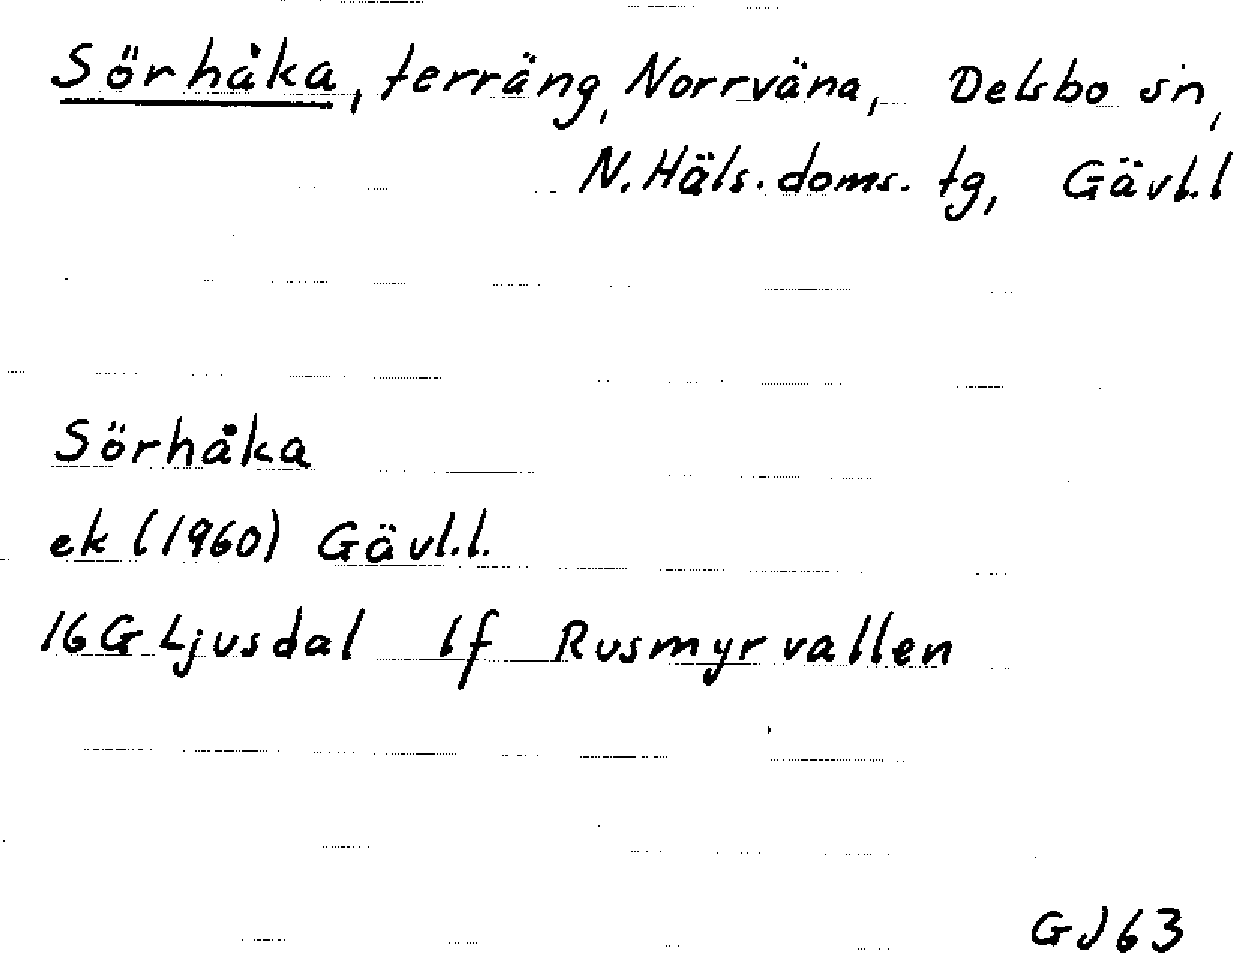 Sörhåka, terräng, Norrväna, Delsbo sn,
N. Häls. doms. tg, Gävl.l
Sörhåka
ek (1960) Gävl.l.
16G Ljusdal 1f Rusmyrvallen
GJ63